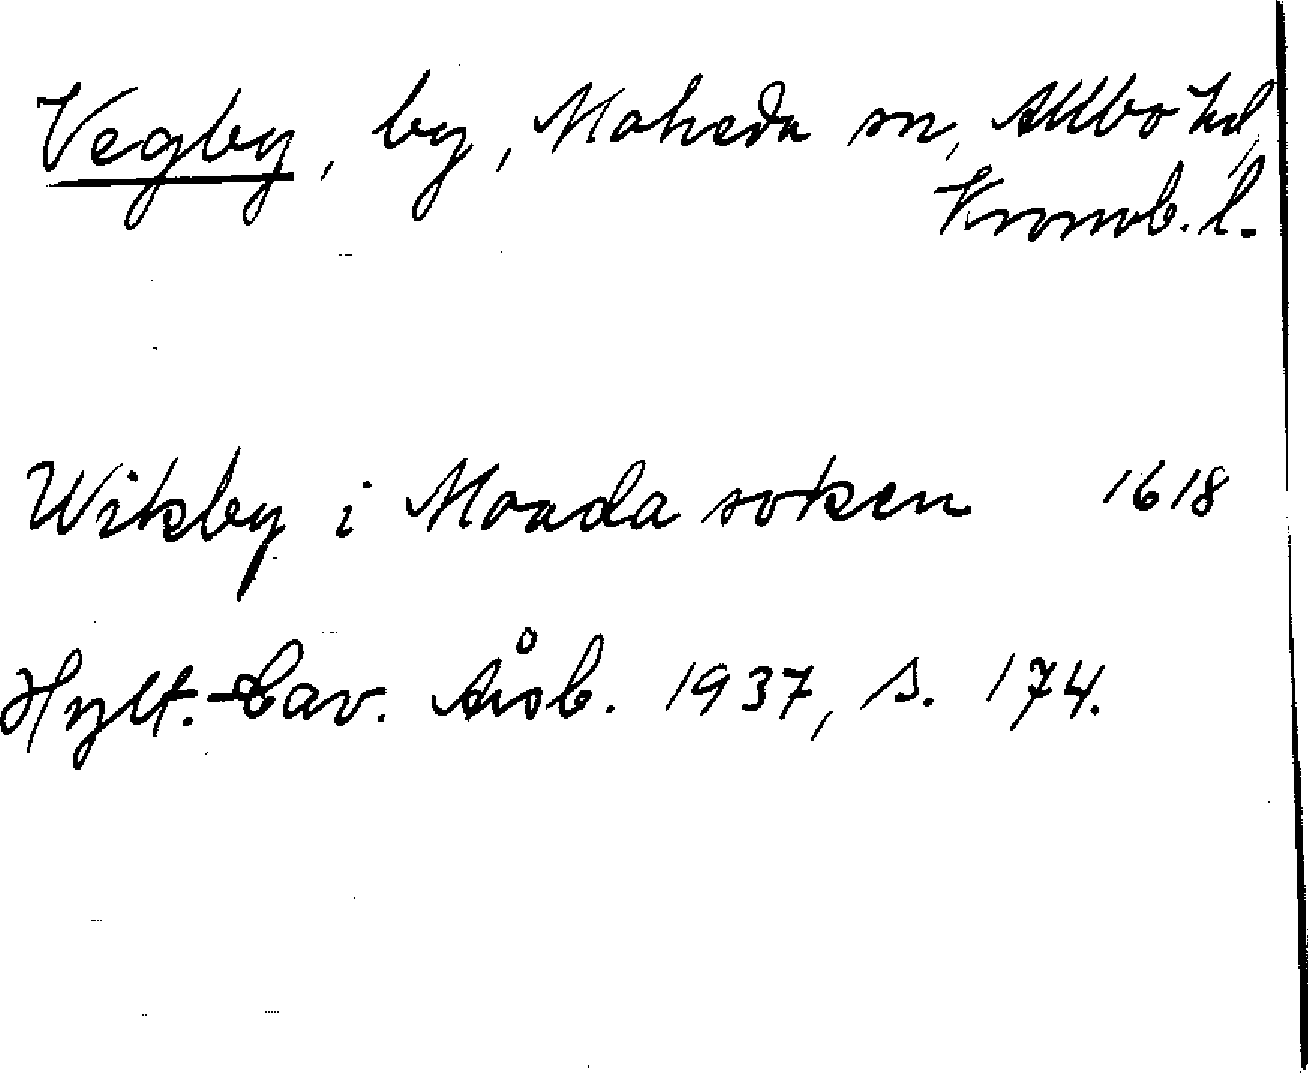 Vegby, by, Moheda sn, Allbo hd,
Kronob. l.
Wikby i Moada soken 1618
Hylt.-Cav. Årsb. 1937, s. 174.